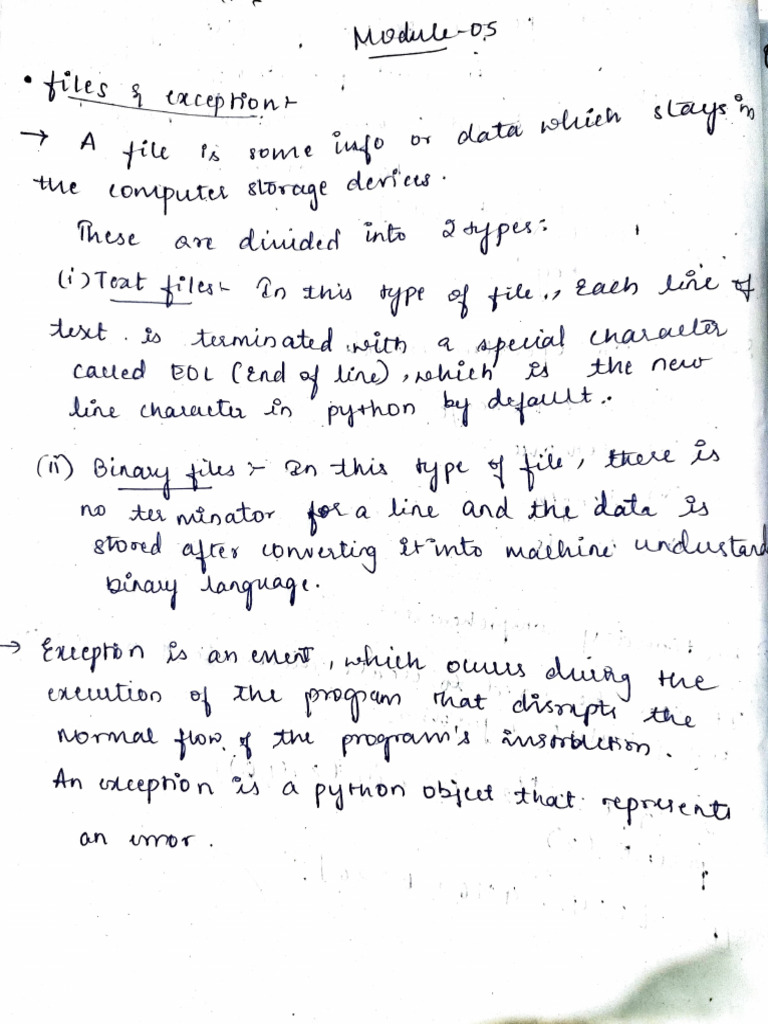 Module-05
• files & exception:-
→ A file is some info or data which stays in
the computer storage devices.
These are divided into 2 types:
(i) Text files:- In this type of file, Each line of
text is terminated with a special character
called EOL (End of line), which is the new
line character in python by default.
(ii) Binary files:- In this type of file, there is
no terminator for a line and the data is
stored after converting it into machine understand
binary language.
→ Exception is an event, which occurs during the
execution of the program that disrupts the
normal flow of the program's instruction.
An exception is a python object that represents
an error.